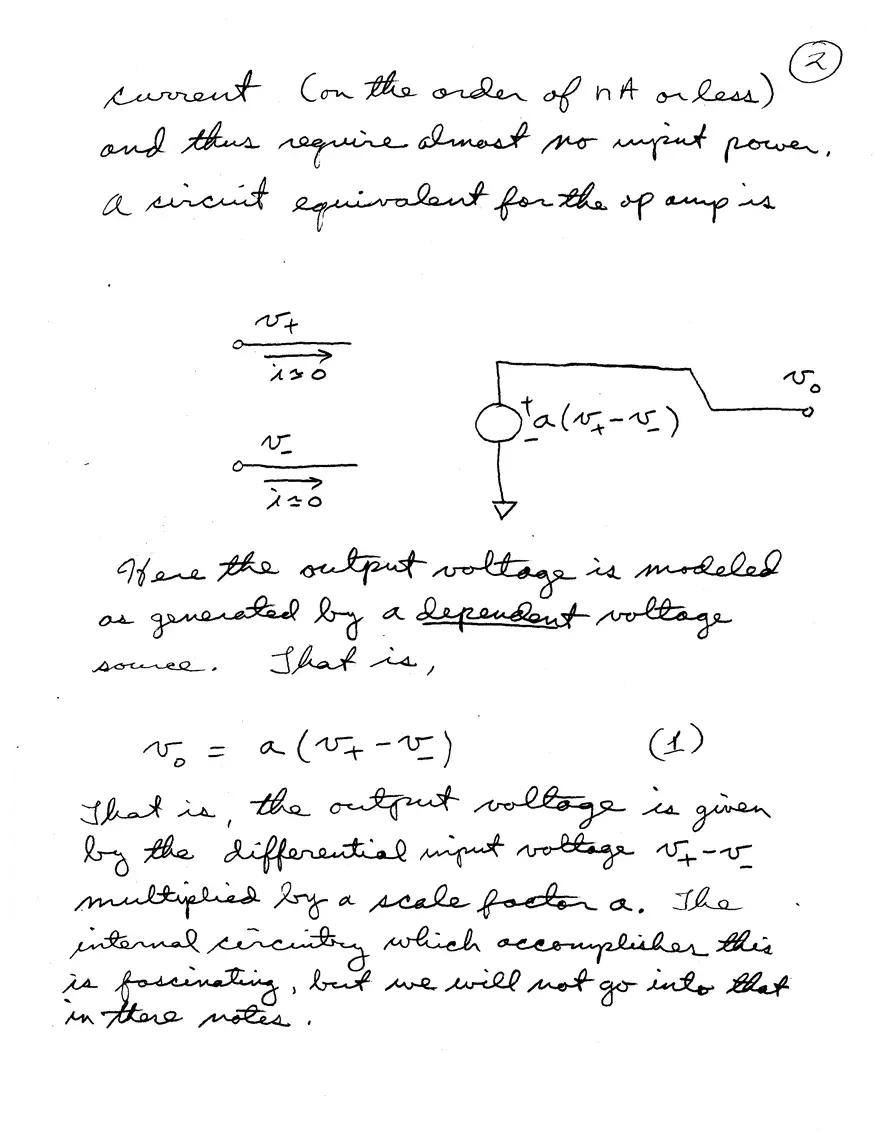 2
current (on the order of nA or less)
and thus require almost no input power.
A circuit equivalent for the op amp is
v₊
i≃0
v₋
i≃0
+
−
a(v₊-v₋)
v₀
Here the output voltage is modeled
as generated by a dependent voltage
source. That is,
v₀ = a(v₊-v₋) (1)
That is, the output voltage is given
by the differential input voltage v₊-v₋
multiplied by a scale factor a. The
internal circuitry which accomplishes this
is fascinating, but we will not go into that
in these notes.